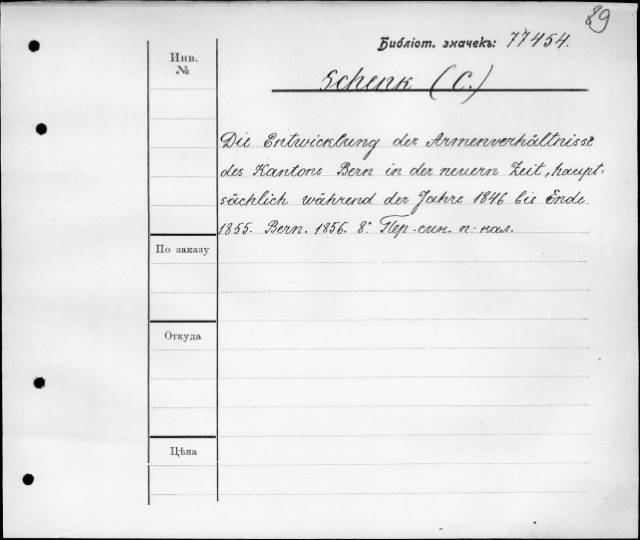 89
Библіот. значекъ: 77454.
Инв.
№
Schenk (C.)
Die Entwicklung der Armenverhältnisse
des Kantons Bern in der neuern Zeit, haupt-
sächlich während der Jahre 1846 bis Ende
1855. Bern. 1856. 8° Пер. син. п-кал.
По заказу
Откуда
Цѣна